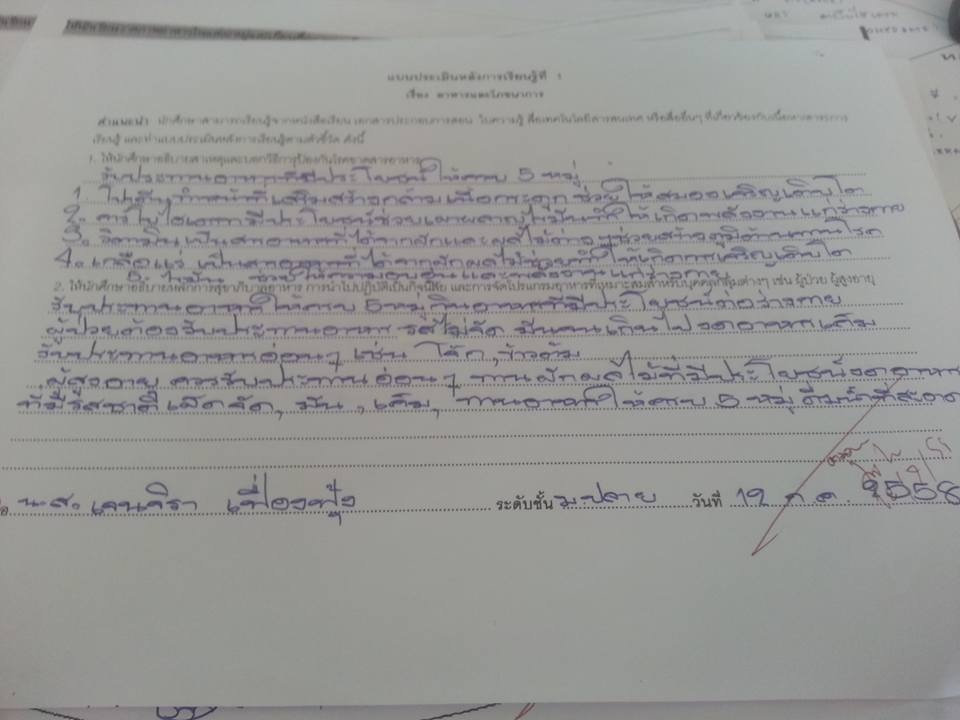 แบบประเมินหลังการเรียนรู้ที่ 1
เรื่อง อาหารและโภชนาการ
คำแนะนำ นักศึกษาสามารถเรียนรู้จากหนังสือเรียน เอกสารประกอบการสอน ใบความรู้ สื่อเทคโนโลยีสารสนเทศ หรือสื่ออื่นๆ ที่เกี่ยวข้องกับเนื้อหาสาระการ
เรียนรู้ และทำแบบประเมินหลังการเรียนรู้ตามตัวชี้วัด ดังนี้
1. ให้นักศึกษาอธิบายสาเหตุและบอกวิธีการป้องกันโรคขาดสารอาหาร
รับประทานอาหารที่มีประโยชน์ให้ครบ 5 หมู่
1. โปรตีน ทำหน้าที่เสริมสร้างกล้ามเนื้อกระดูก ช่วยให้สมองเจริญเติบโต
2. คาร์โบไฮเดรต มีประโยชน์ช่วยเผาผลาญไขมันทำให้เกิดพลังงานแก่ร่างกาย
3. วิตามิน เป็นสารอาหารที่ได้จากผักและผลไม้ต่างๆช่วยสร้างภูมิต้านทานโรค
4. เกลือแร่ เป็นสารอาหารที่ได้จากผักผลไม้ช่วยทำให้เกิดการเจริญเติบโต
5. ไขมัน ช่วยให้ความอบอุ่นและพลังงานแก่ร่างกาย
2. ให้นักศึกษาอธิบายหลักการสุขาภิบาลอาหาร การนำไปปฏิบัติเป็นกิจนิสัย และการจัดโปรแกรมอาหารที่เหมาะสมสำหรับบุคคลกลุ่มต่างๆ เช่น ผู้ป่วย ผู้สูงอายุ
รับประทานอาหารให้ครบ 5 หมู่ กินอาหารที่มีประโยชน์ต่อร่างกาย
ผู้ป่วยต้องรับประทานอาหาร รสไม่จัด มันจนเกินไป งดอาหารเค็ม
รับประทานอาหารอ่อนๆ เช่น โจ๊ก, ข้าวต้ม
ผู้สูงอายุ ควรรับประทานอ่อนๆ ทานผักผลไม้ที่มีประโยชน์ งดอาหาร
ที่มีรสชาติเผ็ดจัด, มัน, เค็ม, ทานอาหารให้ครบ 5 หมู่ ดื่มน้ำที่สะอาด
อ น.ส. เจนจิรา เฟื่องฟุ้ง ระดับชั้น ม.ปลาย วันที่ 12 ก.ค. 2558